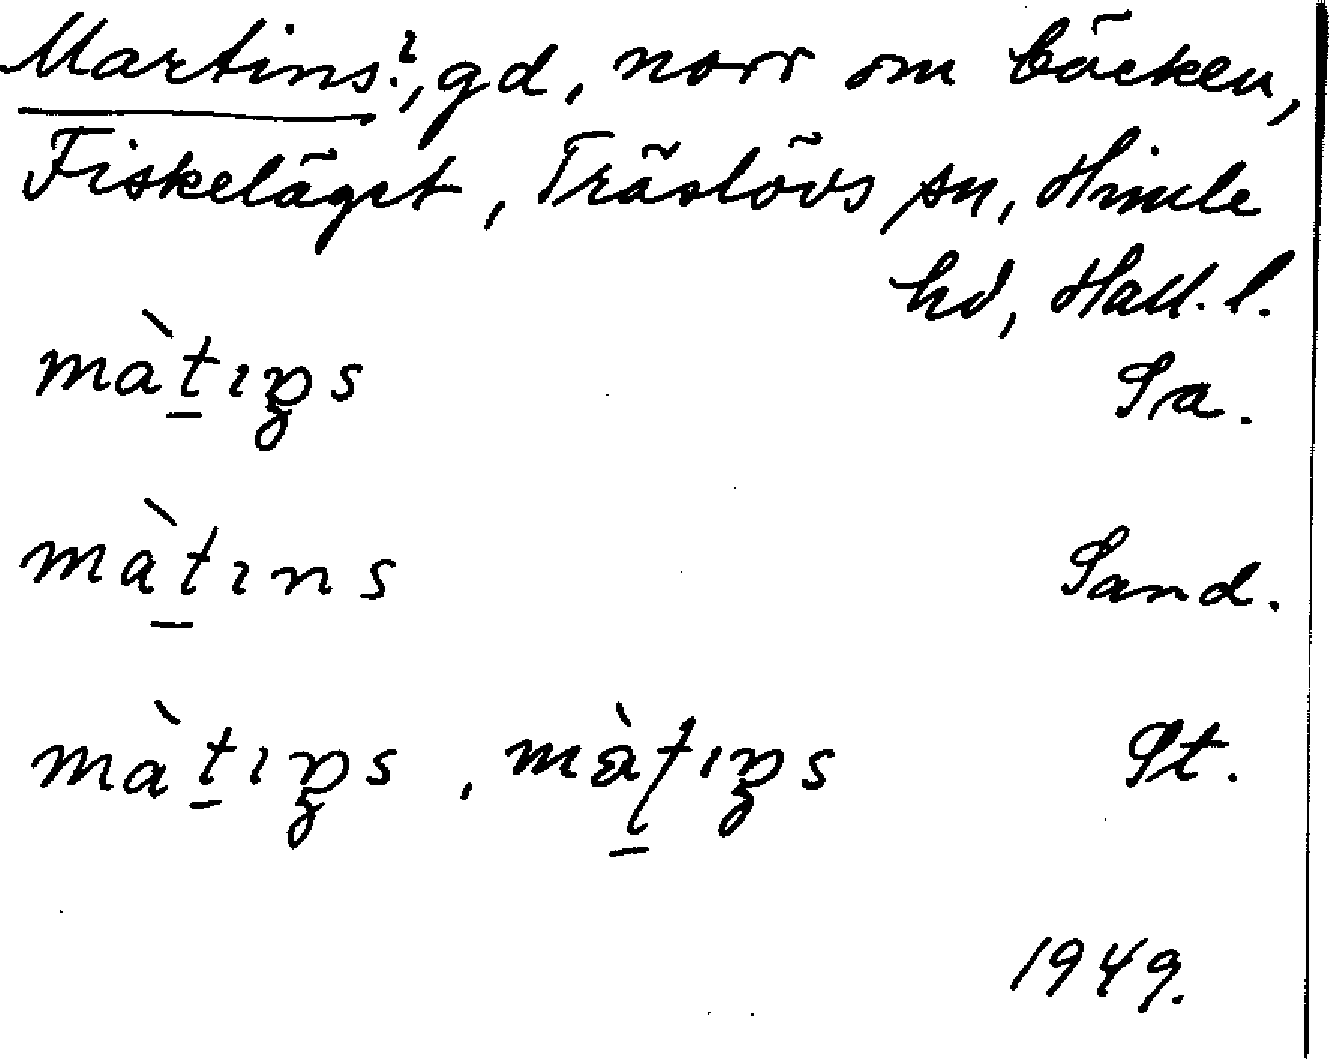 Martins?, gd, norr om bäcken,
Fiskeläget, Träslövs sn, Himle
hd, Hall. l.
màt̲ıꞥs Sa.
màt̲ıns Sand.
màt̲ıꞥs, màʈ̲ıꞥs St.
1949.